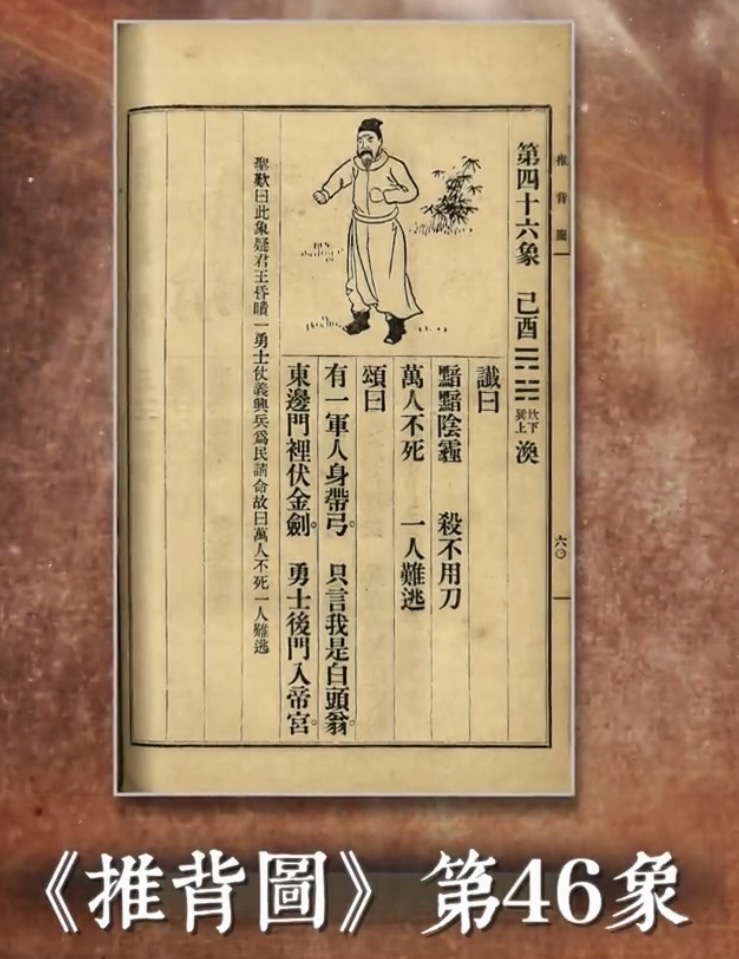 推背圖
六〇
第四十六象 己酉 ䷺ 坎下 巽上 渙
讖曰
黯黯陰霾 殺不用刀
萬人不死 一人難逃
頌曰
有一軍人身帶弓。 只言我是白頭翁。
東邊門裡伏金劍。 勇士後門入帝宮。
聖歎曰此象疑君王昏聵一勇士仗義興兵爲民請命故曰萬人不死一人難逃
《推背圖》第46象